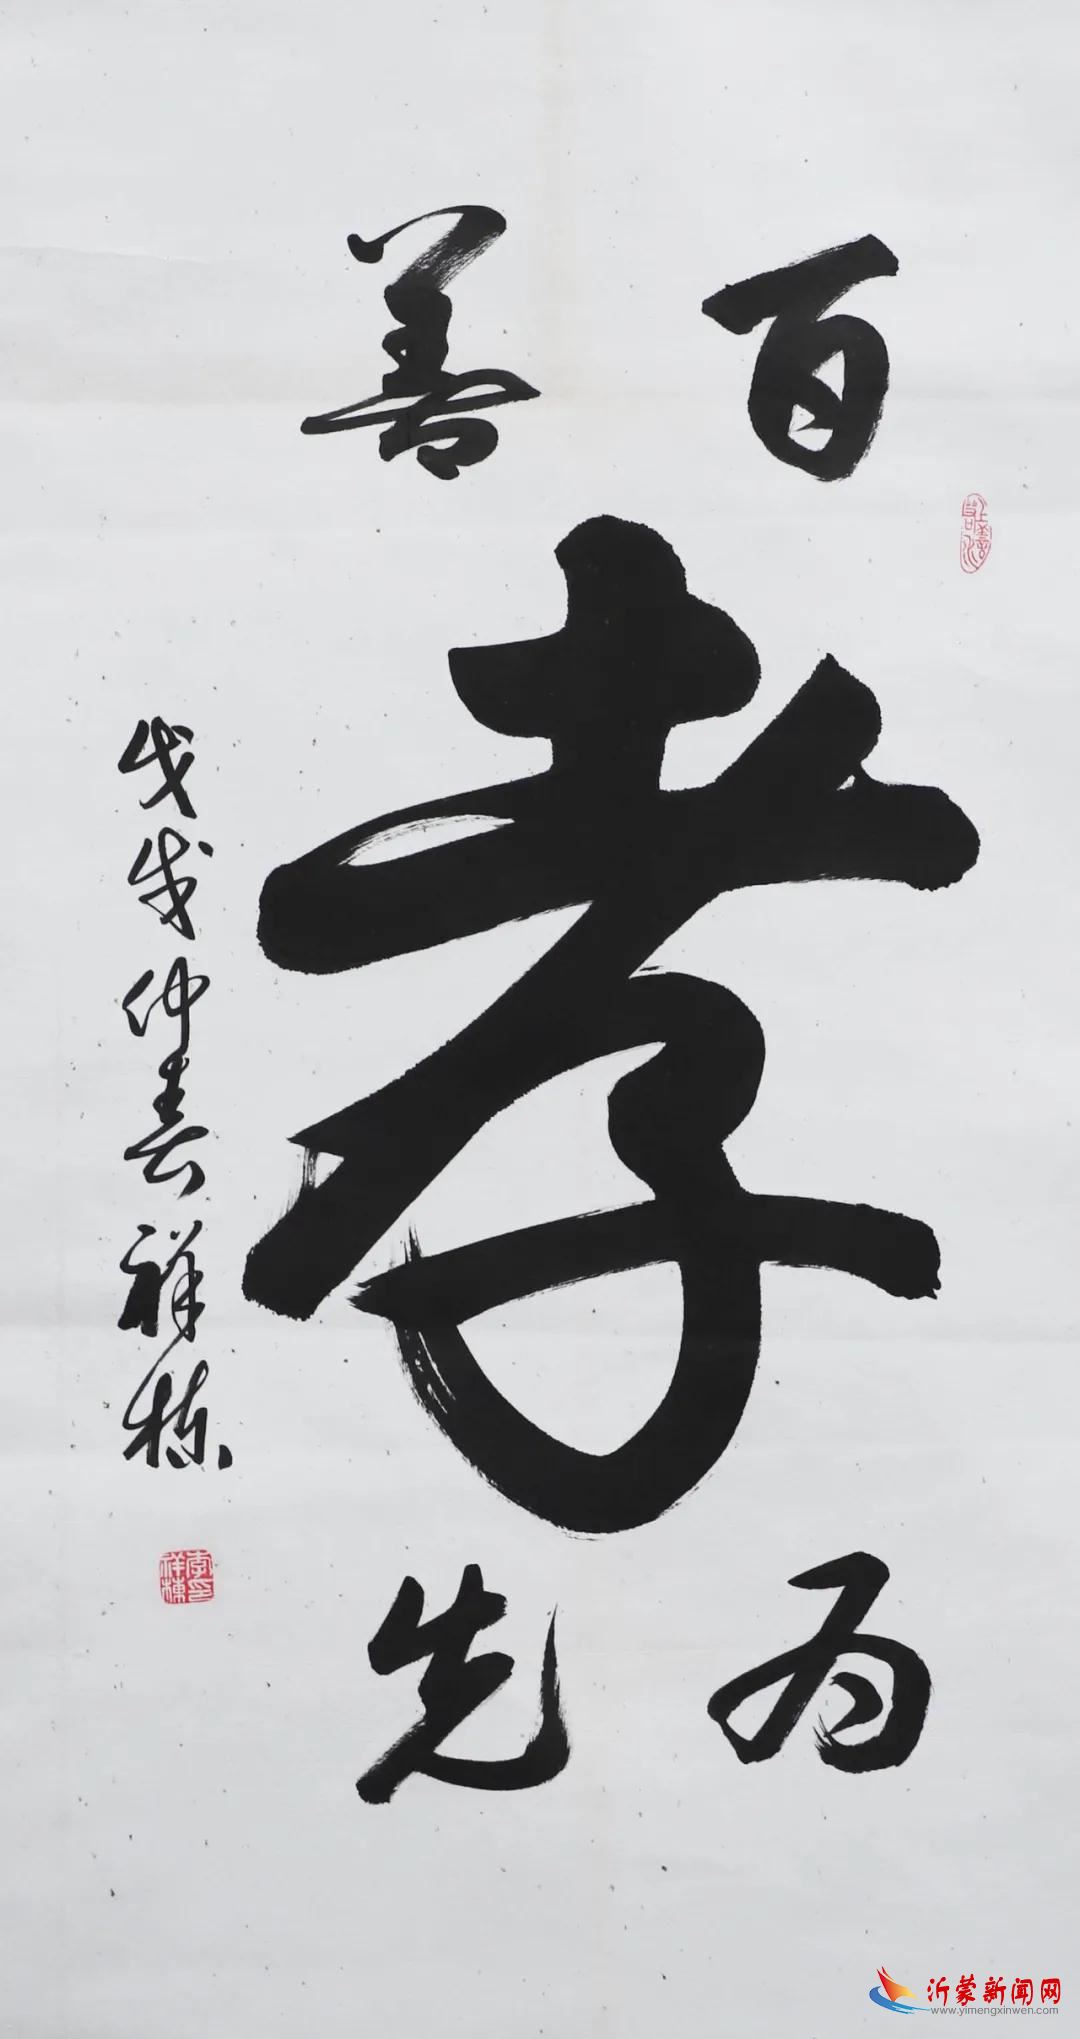 百善
孝
为先
戊戌仲春祥栋
李祥栋印
沂蒙新闻网
www.yimengxinwen.com